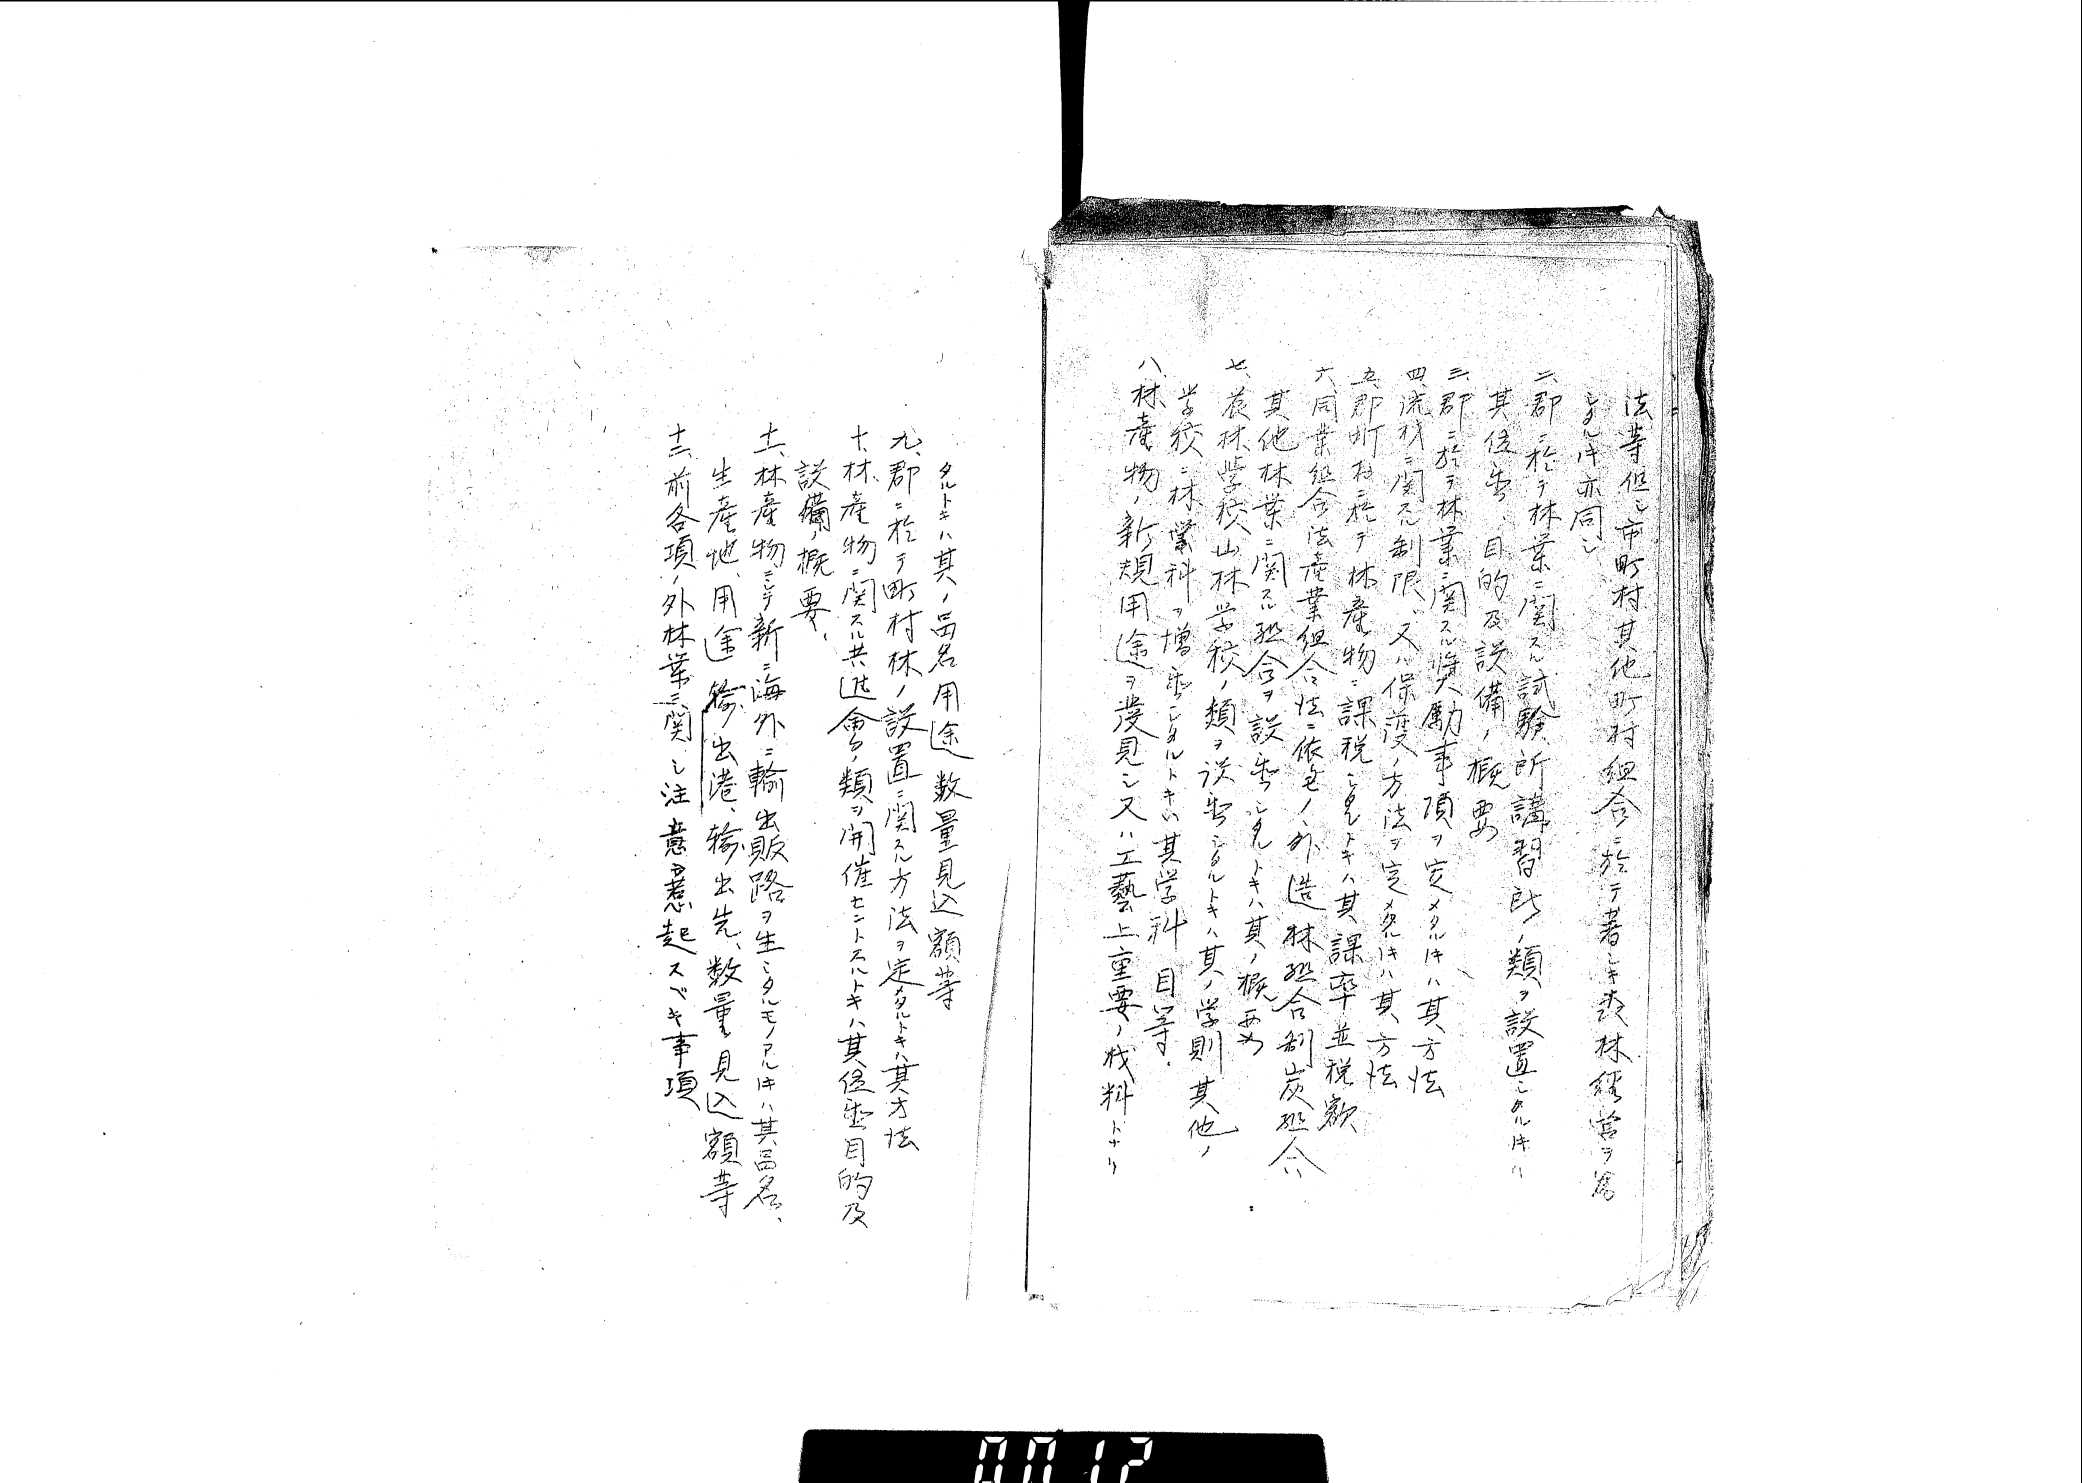 法等但シ市町村其他町村組合ニ於テ著シキ森林経営ヲ為
シタルトキ亦同シ
二、郡ニ於テ林業ニ関スル試験所講習所ノ類ヲ設置シタルトキハ
其位置、目的及設備ノ概要
三、郡ニ於テ林業ニ関スル奨励事項ヲ定メタルトキハ其方法
四、流材ニ関スル制限、又ハ保護ノ方法ヲ定メタルトキハ其方法
五、郡町村ニ於テ林産物ニ課税シタルトキハ其課率並税額
六、同業組合法産業組合法ニ依ルモノヽ外造林組合製炭組合
其他林業ニ関スル組合ヲ設置シタルトキハ其ノ概要
七、農林学校山林学校ノ類ヲ設置シタルトキハ其ノ学則其他ノ
学校ニ林業科ヲ増置シタルトキハ其学科目等
八、林産物ノ新規用途ヲ發見シ又ハ工藝上重要ノ材料トナリ
タルトキハ其ノ品名用途数量見込額等
九、郡ニ於テ町村林ノ設置ニ関スル方法ヲ定メタルトキハ其方法
十、林産物ニ関スル共進會ノ類ヲ開催セントスルトキハ其位置目的及
設備ノ概要、
十一、林産物ニシテ新ニ海外ニ輸出販路ヲ生シタルモノアルトキハ其品名、
生産地、用途輸出港、輸出先、数量見込額等
十二、前各項ノ外林業ニ関シ注意ヲ惹起スベキ事項
0012